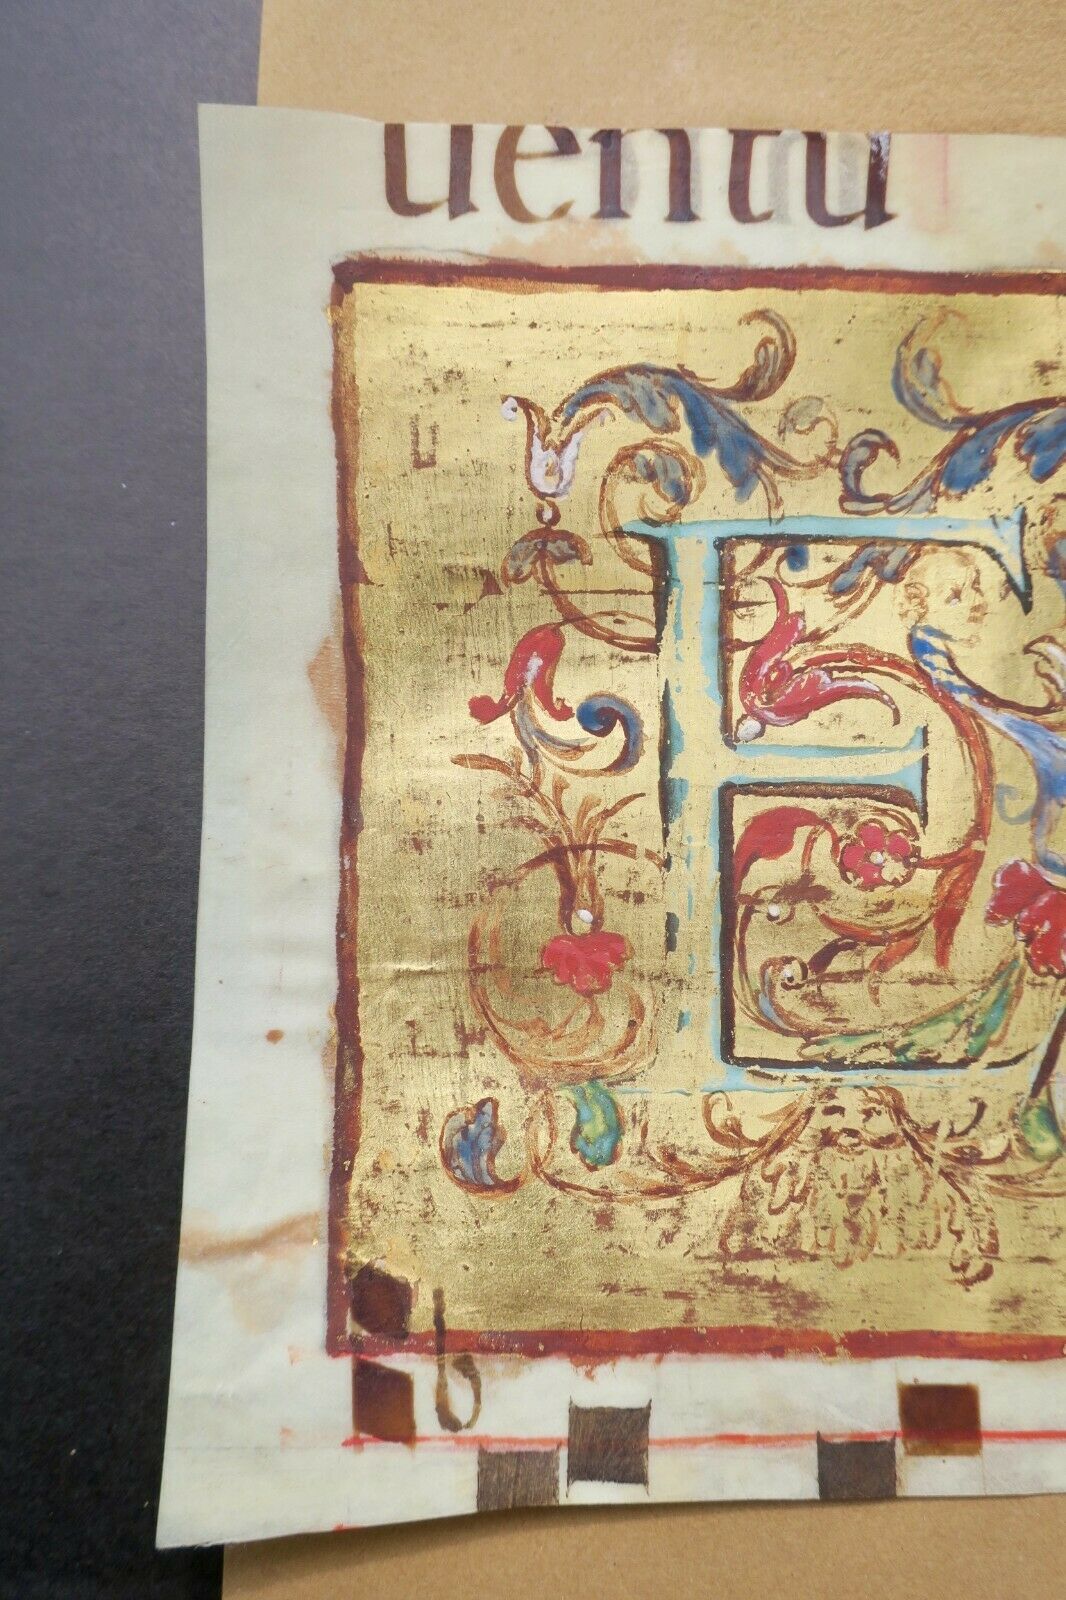 uentu
E